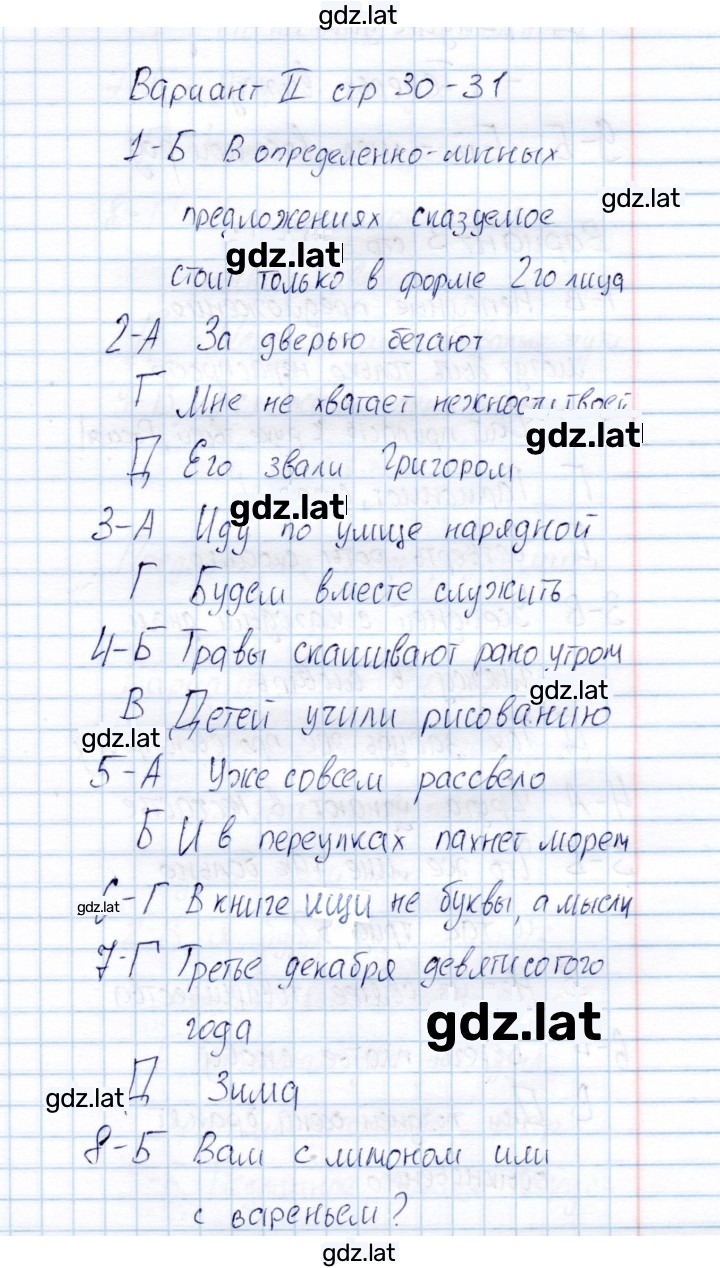 gdz.lat
Вариант II стр 30-31
1-Б В определенно-личных
gdz.lat
предложениях сказуемое
gdz.lat
стоит только в форме 2го лица
2-А За дверью бегают
Г Мне не хватает нежности твоей
gdz.lat
Д Его звали Григором
gdz.lat
3-А Иду по улице нарядной
Г Будем вместе служить
4-Б Травы скашивают рано утром
gdz.lat
В Детей учили рисованию
gdz.lat
5-А Уже совсем рассвело
Б И в переулках пахнет морем
gdz.lat
6-Г В книге ищи не буквы, а мысли
7-Г Третье декабря девятисотого
года
gdz.lat
Д Зима
gdz.lat
8-Б Вам с лимоном или
с вареньем?
gdz.lat